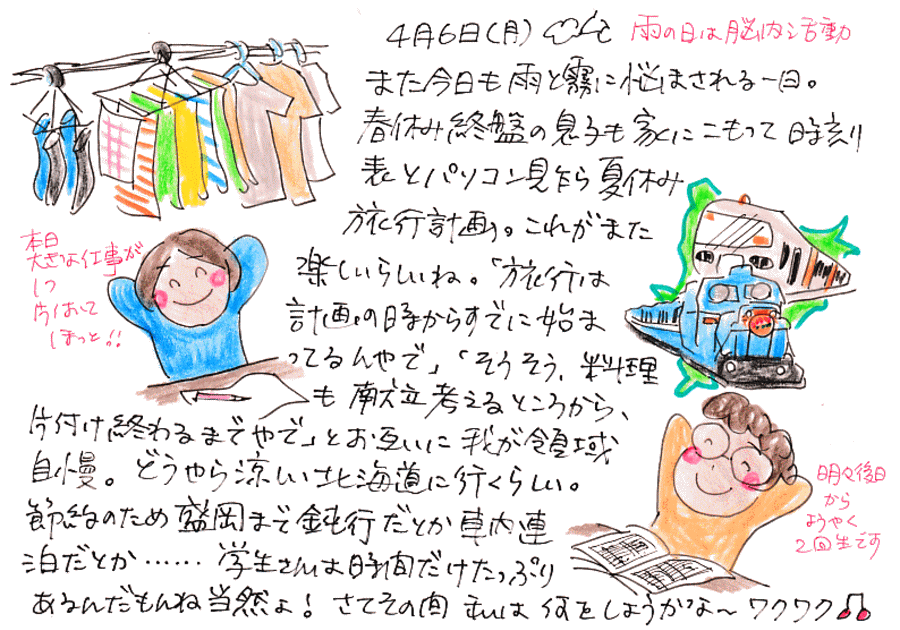 4月6日(月)
雨の日は脳内活動
また今日も雨と霧に悩まされる一日。
春休み終盤の息子も家にこもって時刻
表とパソコン見ながら夏休み
旅行計画。これがまた
楽しいらしいね。「旅行は
計画の時からすでに始ま
ってるんやで」「そうそう、料理
も献立考えるところから、
片付け終わるまでやで」とお互いに我が領域
自慢。どうやら涼しい北海道に行くらしい。
節約のため盛岡まで鈍行だとか車内連
泊だとか……学生さんは時間だけたっぷり
あるんだもんね当然よ！さてその間私は何をしようかな〜ワクワク
本日
大きな仕事が
1つ
片付いて
ほっと!!
明々後日
から
ようやく
2回生です